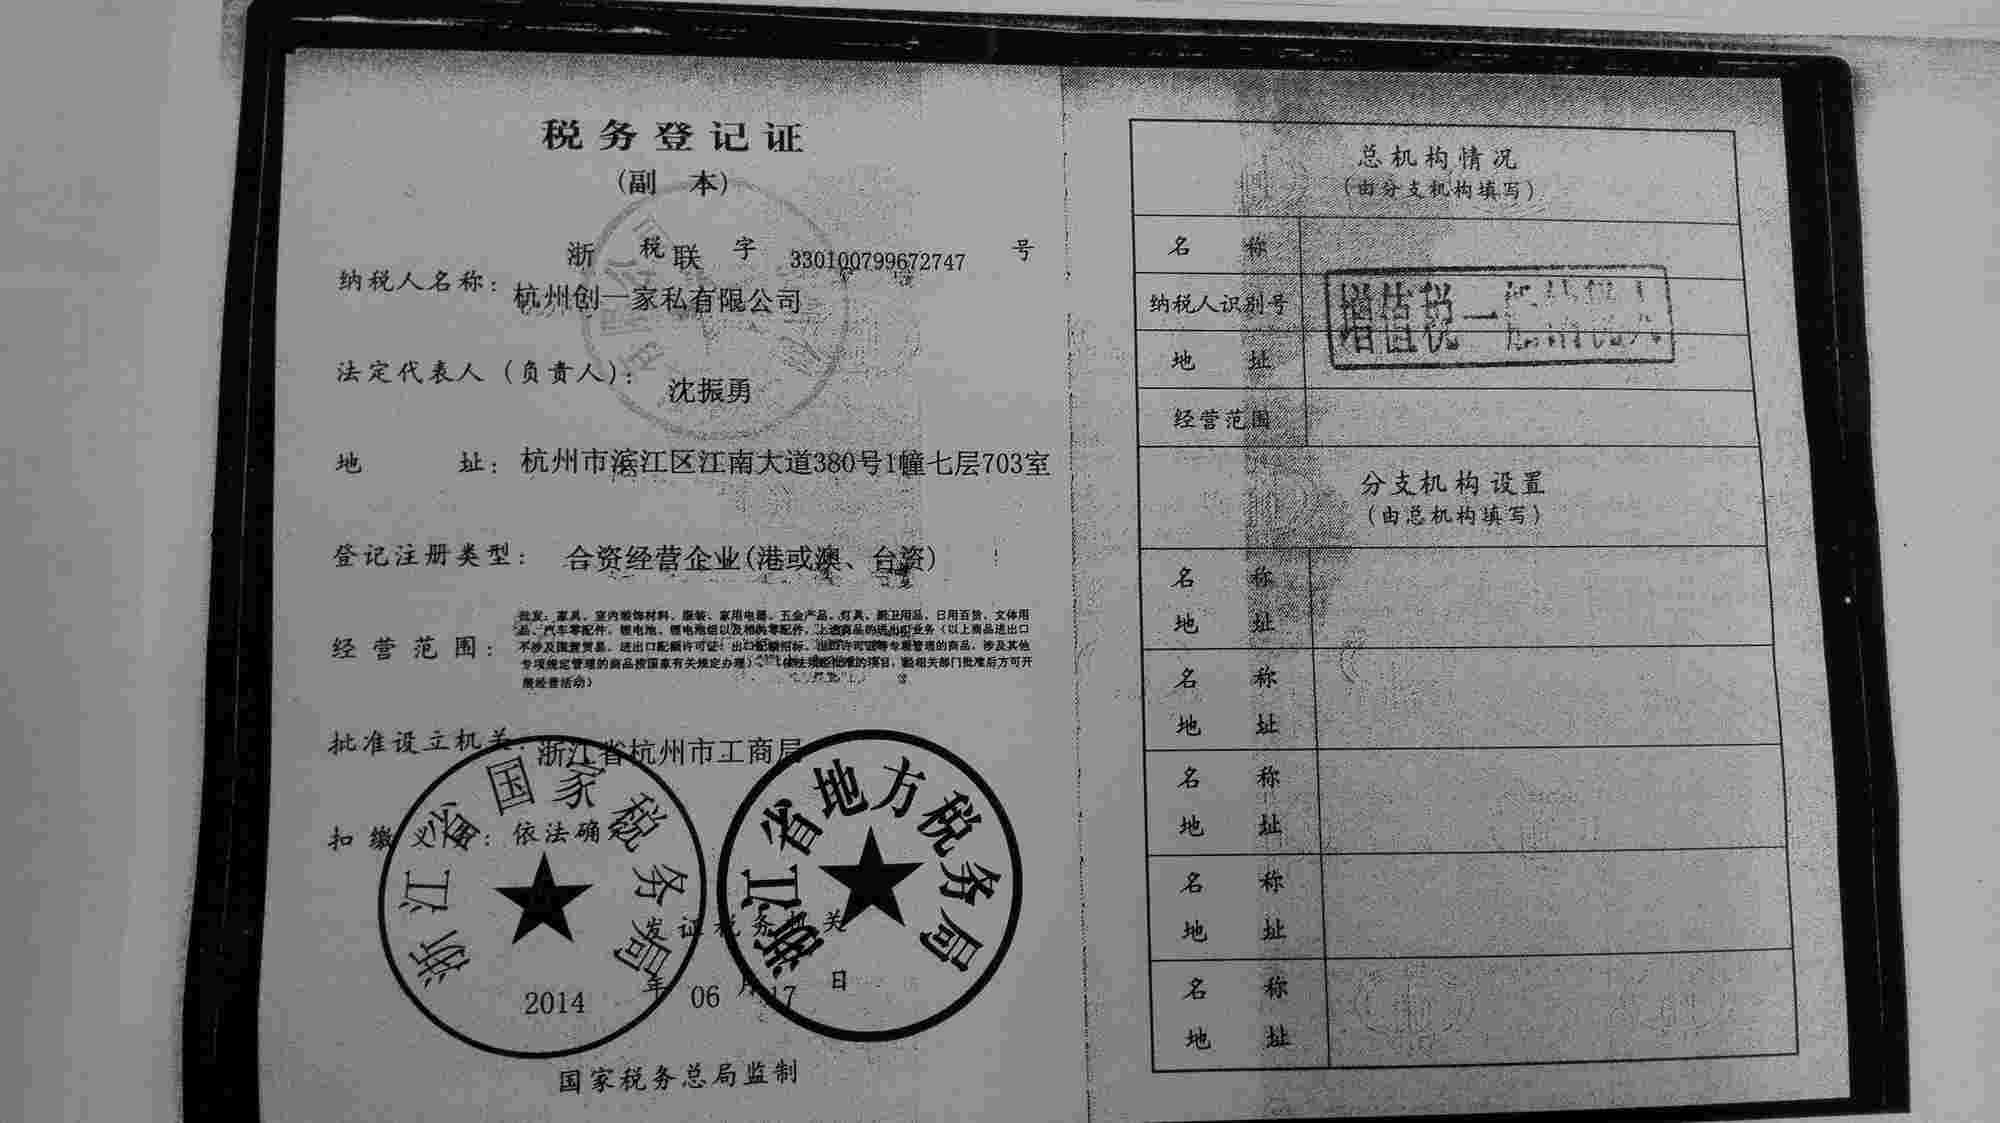 税务登记证
(副 本)
浙 税 联 字 330100799672747 号
纳税人名称: 杭州创一家私有限公司
法定代表人(负责人): 沈振勇
地 址: 杭州市滨江区江南大道380号1幢七层703室
登记注册类型: 合资经营企业(港或澳、台资)
经营范围: 批发:家具、室内装饰材料、服装、家用电器、五金产品、灯具、厨卫用品、日用百货、文体用
品、汽车零配件、锂电池、锂电池组以及相关零配件,上述商品的进出口业务(以上商品进出口
不涉及国营贸易、进出口配额许可证、出口配额招标、出口许可证等专项管理的商品,涉及其他
专项规定管理的商品按国家有关规定办理)。(依法须经批准的项目,经相关部门批准后方可开
展经营活动)
批准设立机关: 浙江省杭州市工商局
扣缴义务: 依法确
浙江省国家税务局
浙江省地方税务局
发证税务机关
2014 年 06 月 17 日
国家税务总局监制
总机构情况
(由分支机构填写)
名 称
纳税人识别号
地 址
增值税一般纳税人
经营范围
分支机构设置
(由总机构填写)
名 称
地 址
名 称
地 址
名 称
地 址
名 称
地 址
名 称
地 址